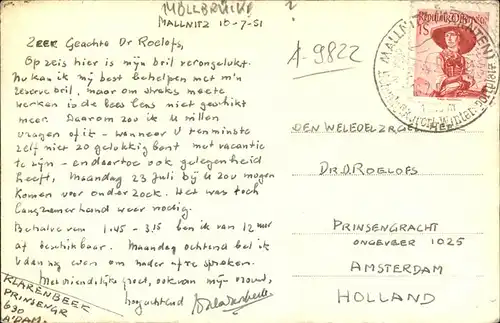 MÖLLBRÜCKE
MALLNITZ 10-7-51
Zeer Geachte Dr Roelofs,
Op reis hier is mijn bril verongelukt.
Nu kan ik mij best behelpen met m'n
reserve bril, maar om straks mee te
werken is de lees lens niet geschikt
meer. Daarom zou ik U willen
vragen of ik - wanneer U tenminste
zelf niet zo gelukkig bent met vacantie
te zijn - en daartoe ook gelegenheid
heeft, Maandag 23 juli bij U zou mogen
komen voor onderzoek. Het was toch
langzamerhand weer nodig.
Behalve van 1.45-3.15 ben ik van 12 uur
af beschikbaar. Maandag ochtend bel ik
U dan nog even om nader af te spreken.
Met vriendelijke groet, ook van mijn vrouw,
hoogachtend
KLARENBEEK
PRINSENGR
690
A'DAM
A-9822
REPUBLIK ÖSTERREICH
1S
MALLNITZ
DEN WELEDELZRGEL. HEER
DR.D.ROELOFS
PRINSENGRACHT
ONGEVEER 1025
AMSTERDAM
HOLLAND